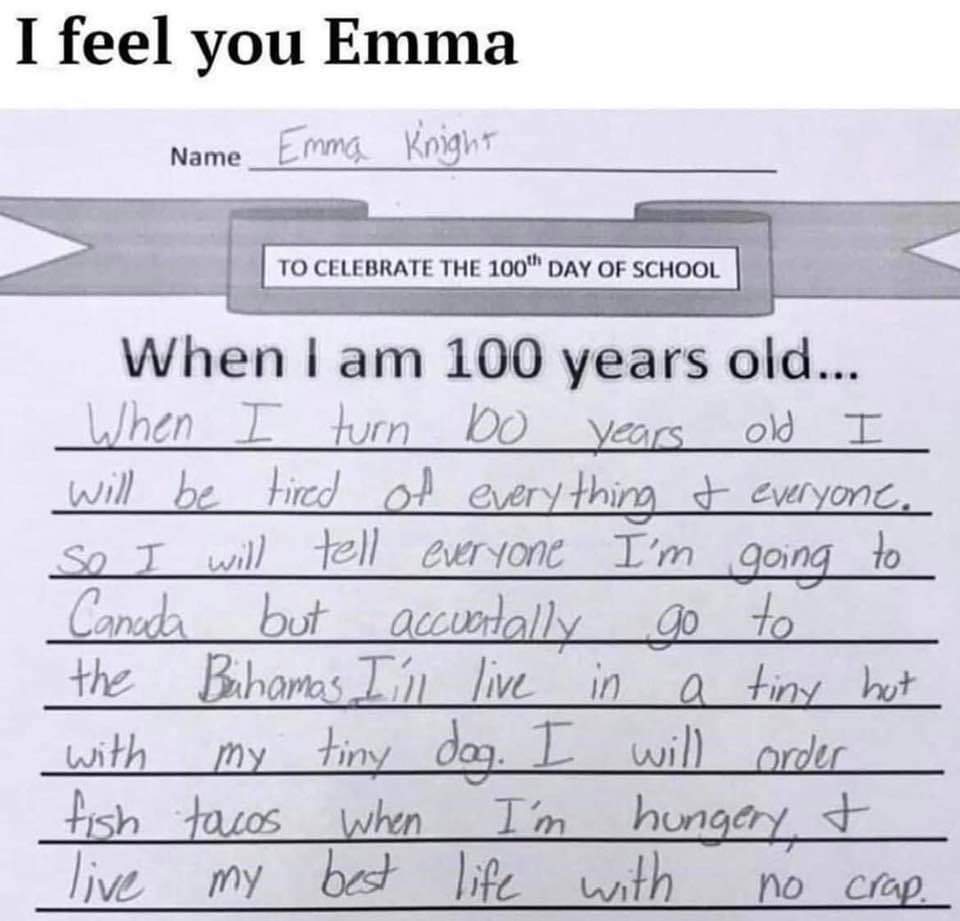 I feel you Emma
Name Emma Knight
TO CELEBRATE THE 100th DAY OF SCHOOL
When I am 100 years old...
When I turn 100 years old I
will be tired of everything & everyone.
So I will tell everyone I'm going to
Canada but accuatally go to
the Bahamas I'll live in a tiny hut
with my tiny dog. I will order
fish tacos when I'm hungery, &
live my best life with no crap.